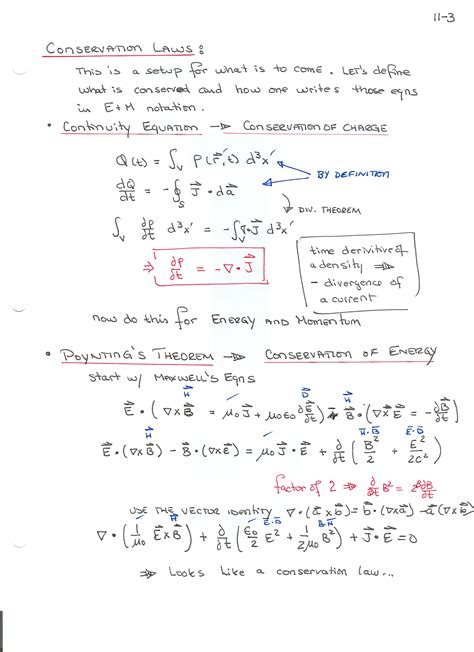 11-3
CONSERVATION LAWS:
This is a setup for what is to come. Let's define
what is conserved and how one writes those eqns
in E+M notation.
• Continuity Equation → Conservation of Charge
Q(t) = ∫_V ρ(r⃗′,t) d³x′
BY DEFINITION
dQ/dt = -∮_S J⃗ · da⃗
↓ DIV. THEOREM
∫_V ∂ρ/∂t d³x′ = -∫_V ∇·J⃗ d³x′
⇒ ∂ρ/∂t = -∇·J⃗
time derivitive of
a density ⇒
- divergence of
a current
now do this for Energy and Momentum
• Poynting's Theorem → Conservation of Energy
start w/ Maxwell's Eqns
H⃗ D⃗
E⃗ · (∇×B⃗ = μ₀J⃗ + μ₀ε₀ ∂E⃗/∂t) - B⃗ · (∇×E⃗ = -∂B⃗/∂t)
H⃗ H⃗ H⃗·B⃗ E⃗·D⃗
E⃗·(∇×B⃗) - B⃗·(∇×E⃗) = μ₀J⃗·E⃗ + ∂/∂t (B²/2 + E²/2c²)
factor of 2 ⇒ ∂/∂t B² = 2B ∂B/∂t
USE THE VECTOR IDENTITY ∇·(a⃗×b⃗) = b⃗·(∇×a⃗) - a⃗·(∇×b⃗)
H⃗ E⃗·D⃗ B⃗·H⃗
∇·(1/μ₀ E⃗×B⃗) + ∂/∂t (ε₀/2 E² + 1/2μ₀ B²) + J⃗·E⃗ = 0
⇒ Looks like a conservation law...